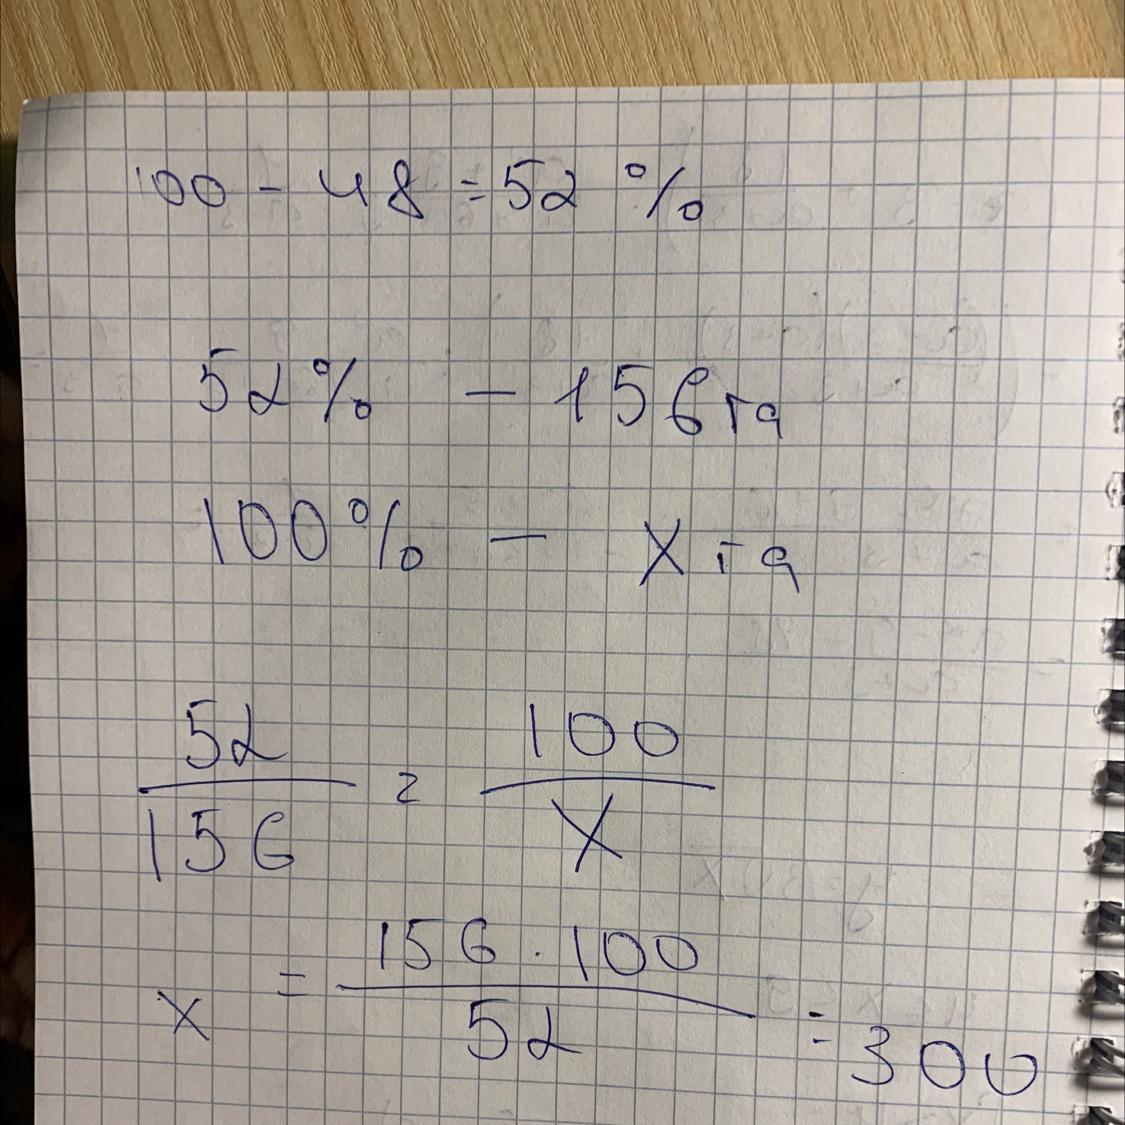 100 - 48 = 52 %
52% - 156га
100% - X га
52/156 = 100/X
X = 156 · 100/52 = 300